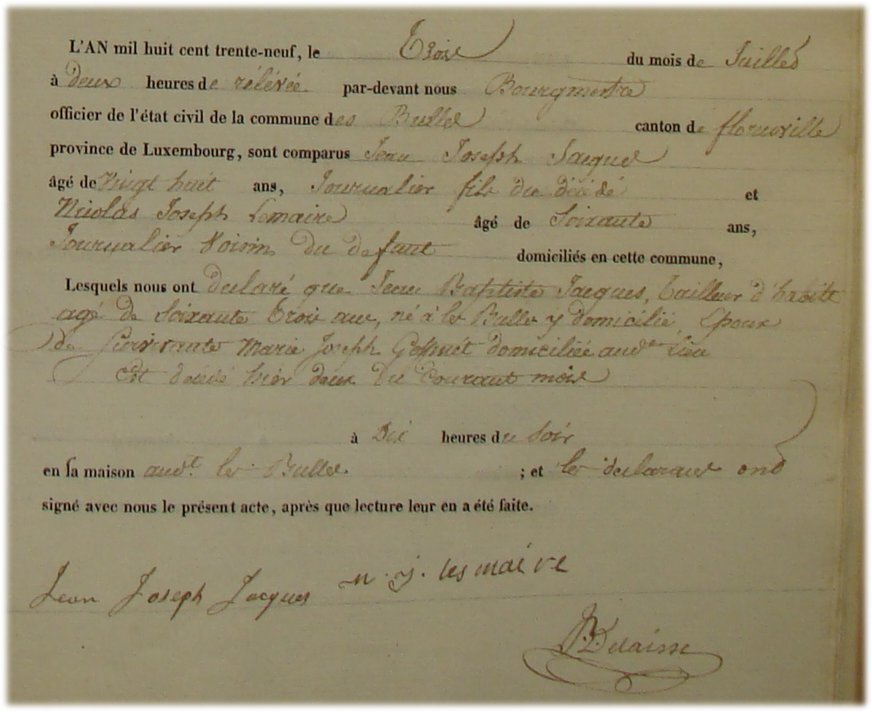 L'AN mil huit cent trente-neuf, le Trois du mois de Juillet
à deux heures de rélévée par-devant nous Bourgmestre
officier de l'état civil de la commune des Bulles canton de florenville
province de Luxembourg, sont comparus Jean Joseph Jacques
âgé de vingt huit ans, Journalier fils du décédé et
Nicolas Joseph Lemaire âgé de Soixante ans,
Journalier Voisin du defunt domiciliés en cette commune,
Lesquels nous ont declaré que Jean Baptiste Jacques, tailleur d'habits
agé de Soixante trois ans, né à les Bulles y domicilié, Epoux
de Survivante Marie Joseph domiciliée audt Lieu
Est décédé hier deux du Courant mois
à Dix heures du Soir
en sa maison audt les Bulles ; et les declarans ont
signé avec nous le présent acte, après que lecture leur en a été faite.
Jean Joseph Jacques n. j. les maire